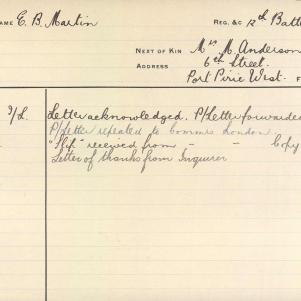 NAME E. B. Martin REG. &C 12th Batt
NEXT OF KIN Mrs M. Anderson
ADDRESS 6th Street.
Port Pirie West.
9/L. Letter acknowledged. P/Letter forwarded
P/Letter repeated to Commrs London
"Slip" received from - - Copy
Letter of thanks from Inquirer